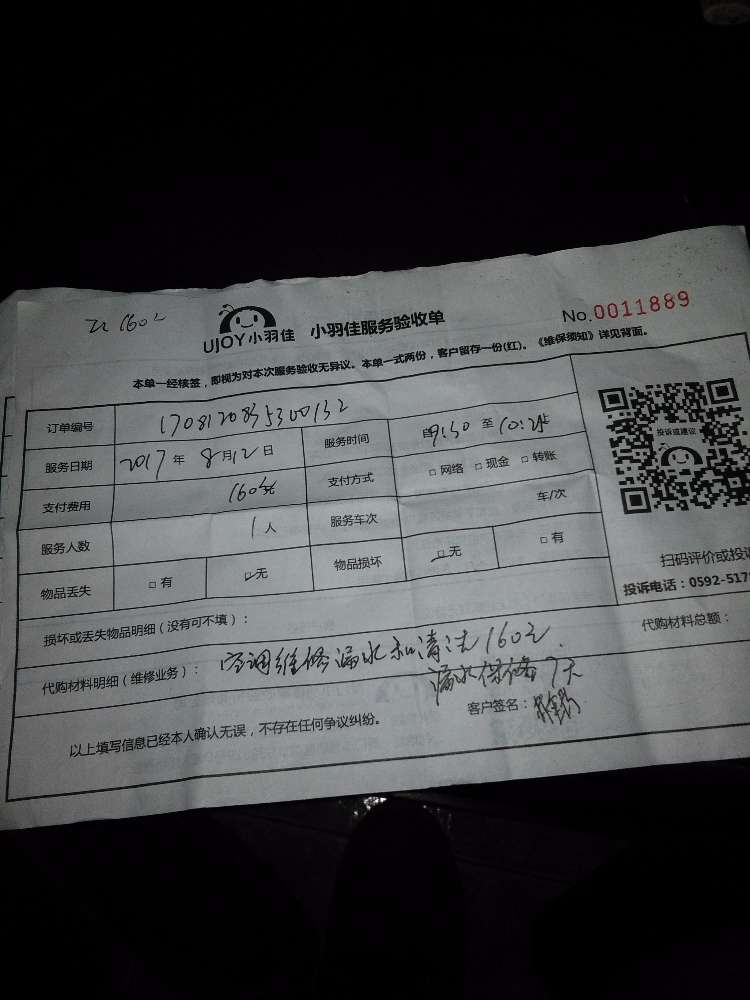 160元
UJOY小羽佳 小羽佳服务验收单 No.0011889
本单一经核签，即视为对本次服务验收无异议。本单一式两份，客户留存一份(红)。《维保须知》详见背面。
订单编号 1708120835300132
服务日期 2017年8月12日 服务时间 自9:30至10:25止
支付费用 160元 支付方式 □网络 □现金 □转账
服务人数 1人 服务车次 车/次
物品丢失 □有 □无 物品损坏 □无 □有
投诉或建议
扫码评价或投诉
投诉电话：0592-517
损坏或丢失物品明细（没有可不填）：
代购材料总额：
代购材料明细（维修业务）： 空调维修漏水和清洁160元.
漏水保修7天
客户签名：
以上填写信息已经本人确认无误，不存在任何争议纠纷。